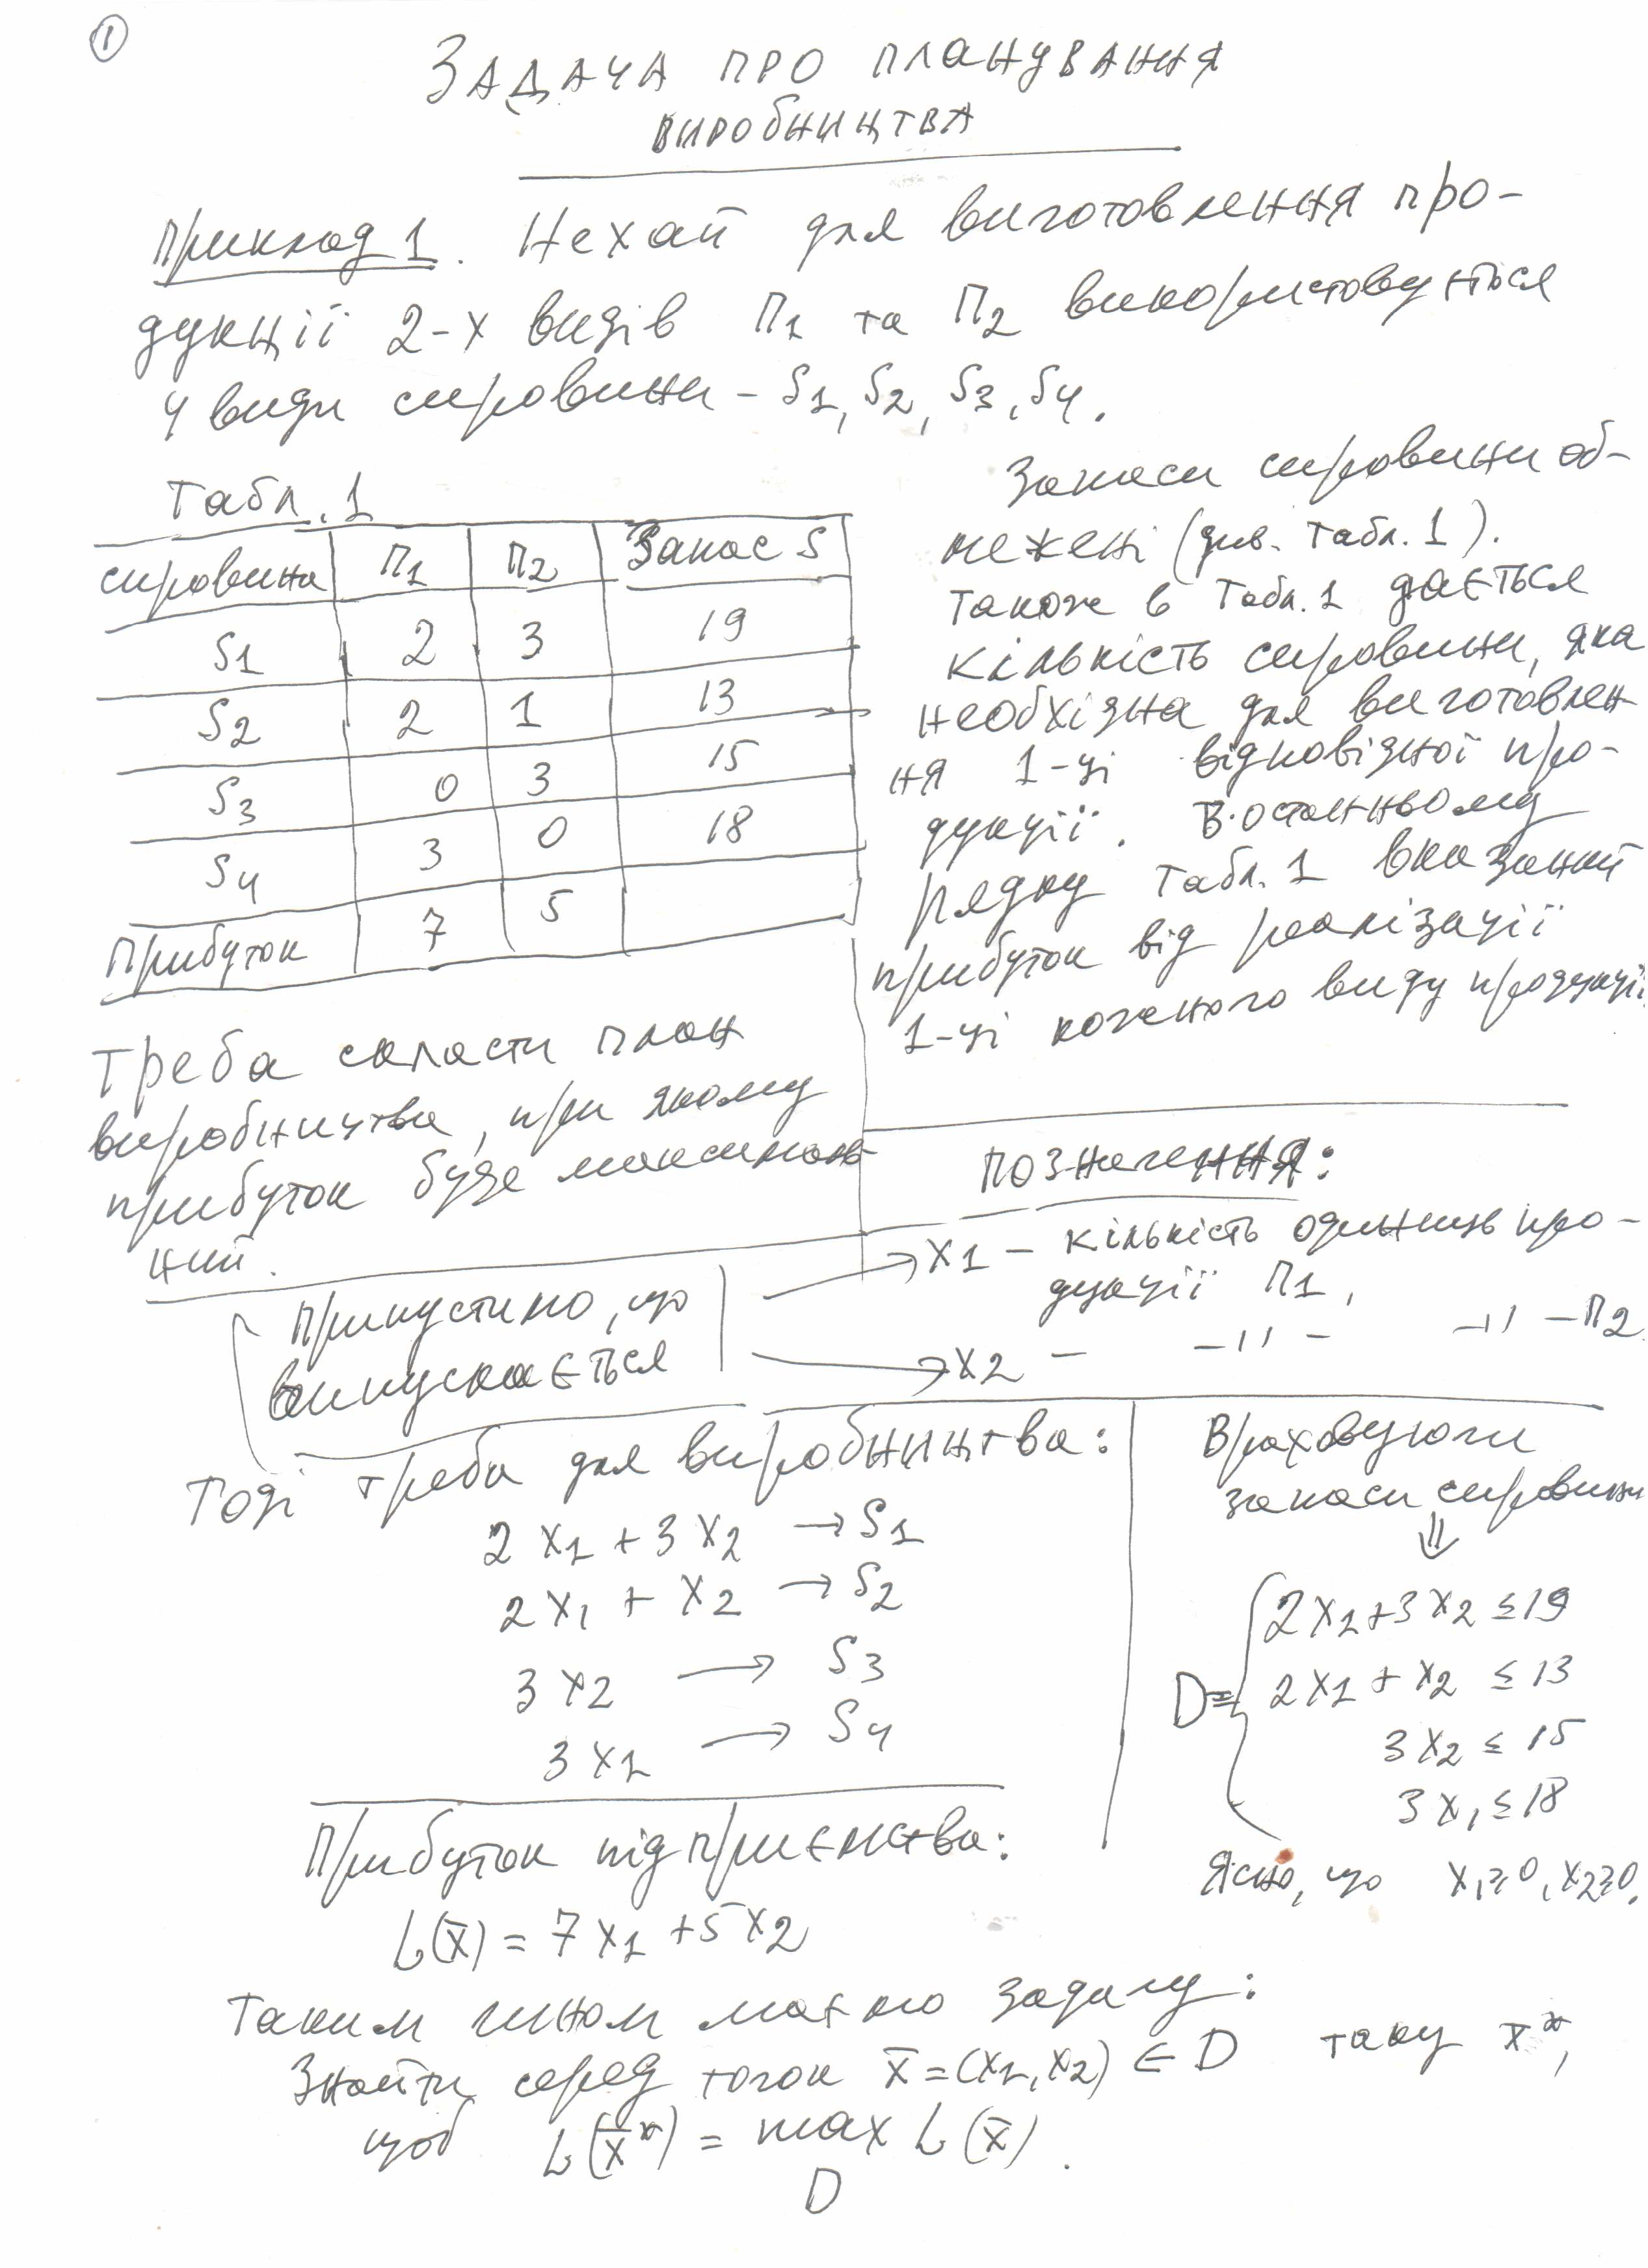 1
ЗАДАЧА ПРО ПЛАНУВАННЯ
ВИРОБНИЦТВА
Приклад 1. Нехай для виготовлення про-
дукції 2-х видів П1 та П2 використовується
4 види сировини - S1, S2, S3, S4.
Табл. 1
сировина П1 П2 Запас S
S1 2 3 19
S2 2 1 13
S3 0 3 15
S4 3 0 18
Прибуток 7 5
Запаси сировини об-
межені (див. Табл. 1).
Також в Табл. 1 дається
кількість сировини, яка
необхідна для виготовлен-
ня 1-ці відповідної про-
дукції. В останньому
рядку Табл. 1 вказаний
прибуток від реалізації
1-ці кожного виду продукції.
Треба скласти план
виробництва, при якому
прибуток буде максималь-
ний.
Позначення:
Припустимо, що
випускається
x1 - кількість одиниць про-
дукції П1,
x2 - -"- -"- П2
Тоді треба для виробництва:
2x1 + 3x2 → S1
2x1 + x2 → S2
3x2 → S3
3x1 → S4
Враховуючи
запаси сировини
⇓
D = { 2x1 + 3x2 ≤ 19
2x1 + x2 ≤ 13
3x2 ≤ 15
3x1 ≤ 18
Ясно, що x1 ≥ 0, x2 ≥ 0.
Прибуток підприємства:
L(x̄) = 7x1 + 5x2
Таким чином маємо задачу:
Знайти серед точок x̄ = (x1, x2) ∈ D таку x̄*,
щоб L(x̄*) = max L(x̄).
D